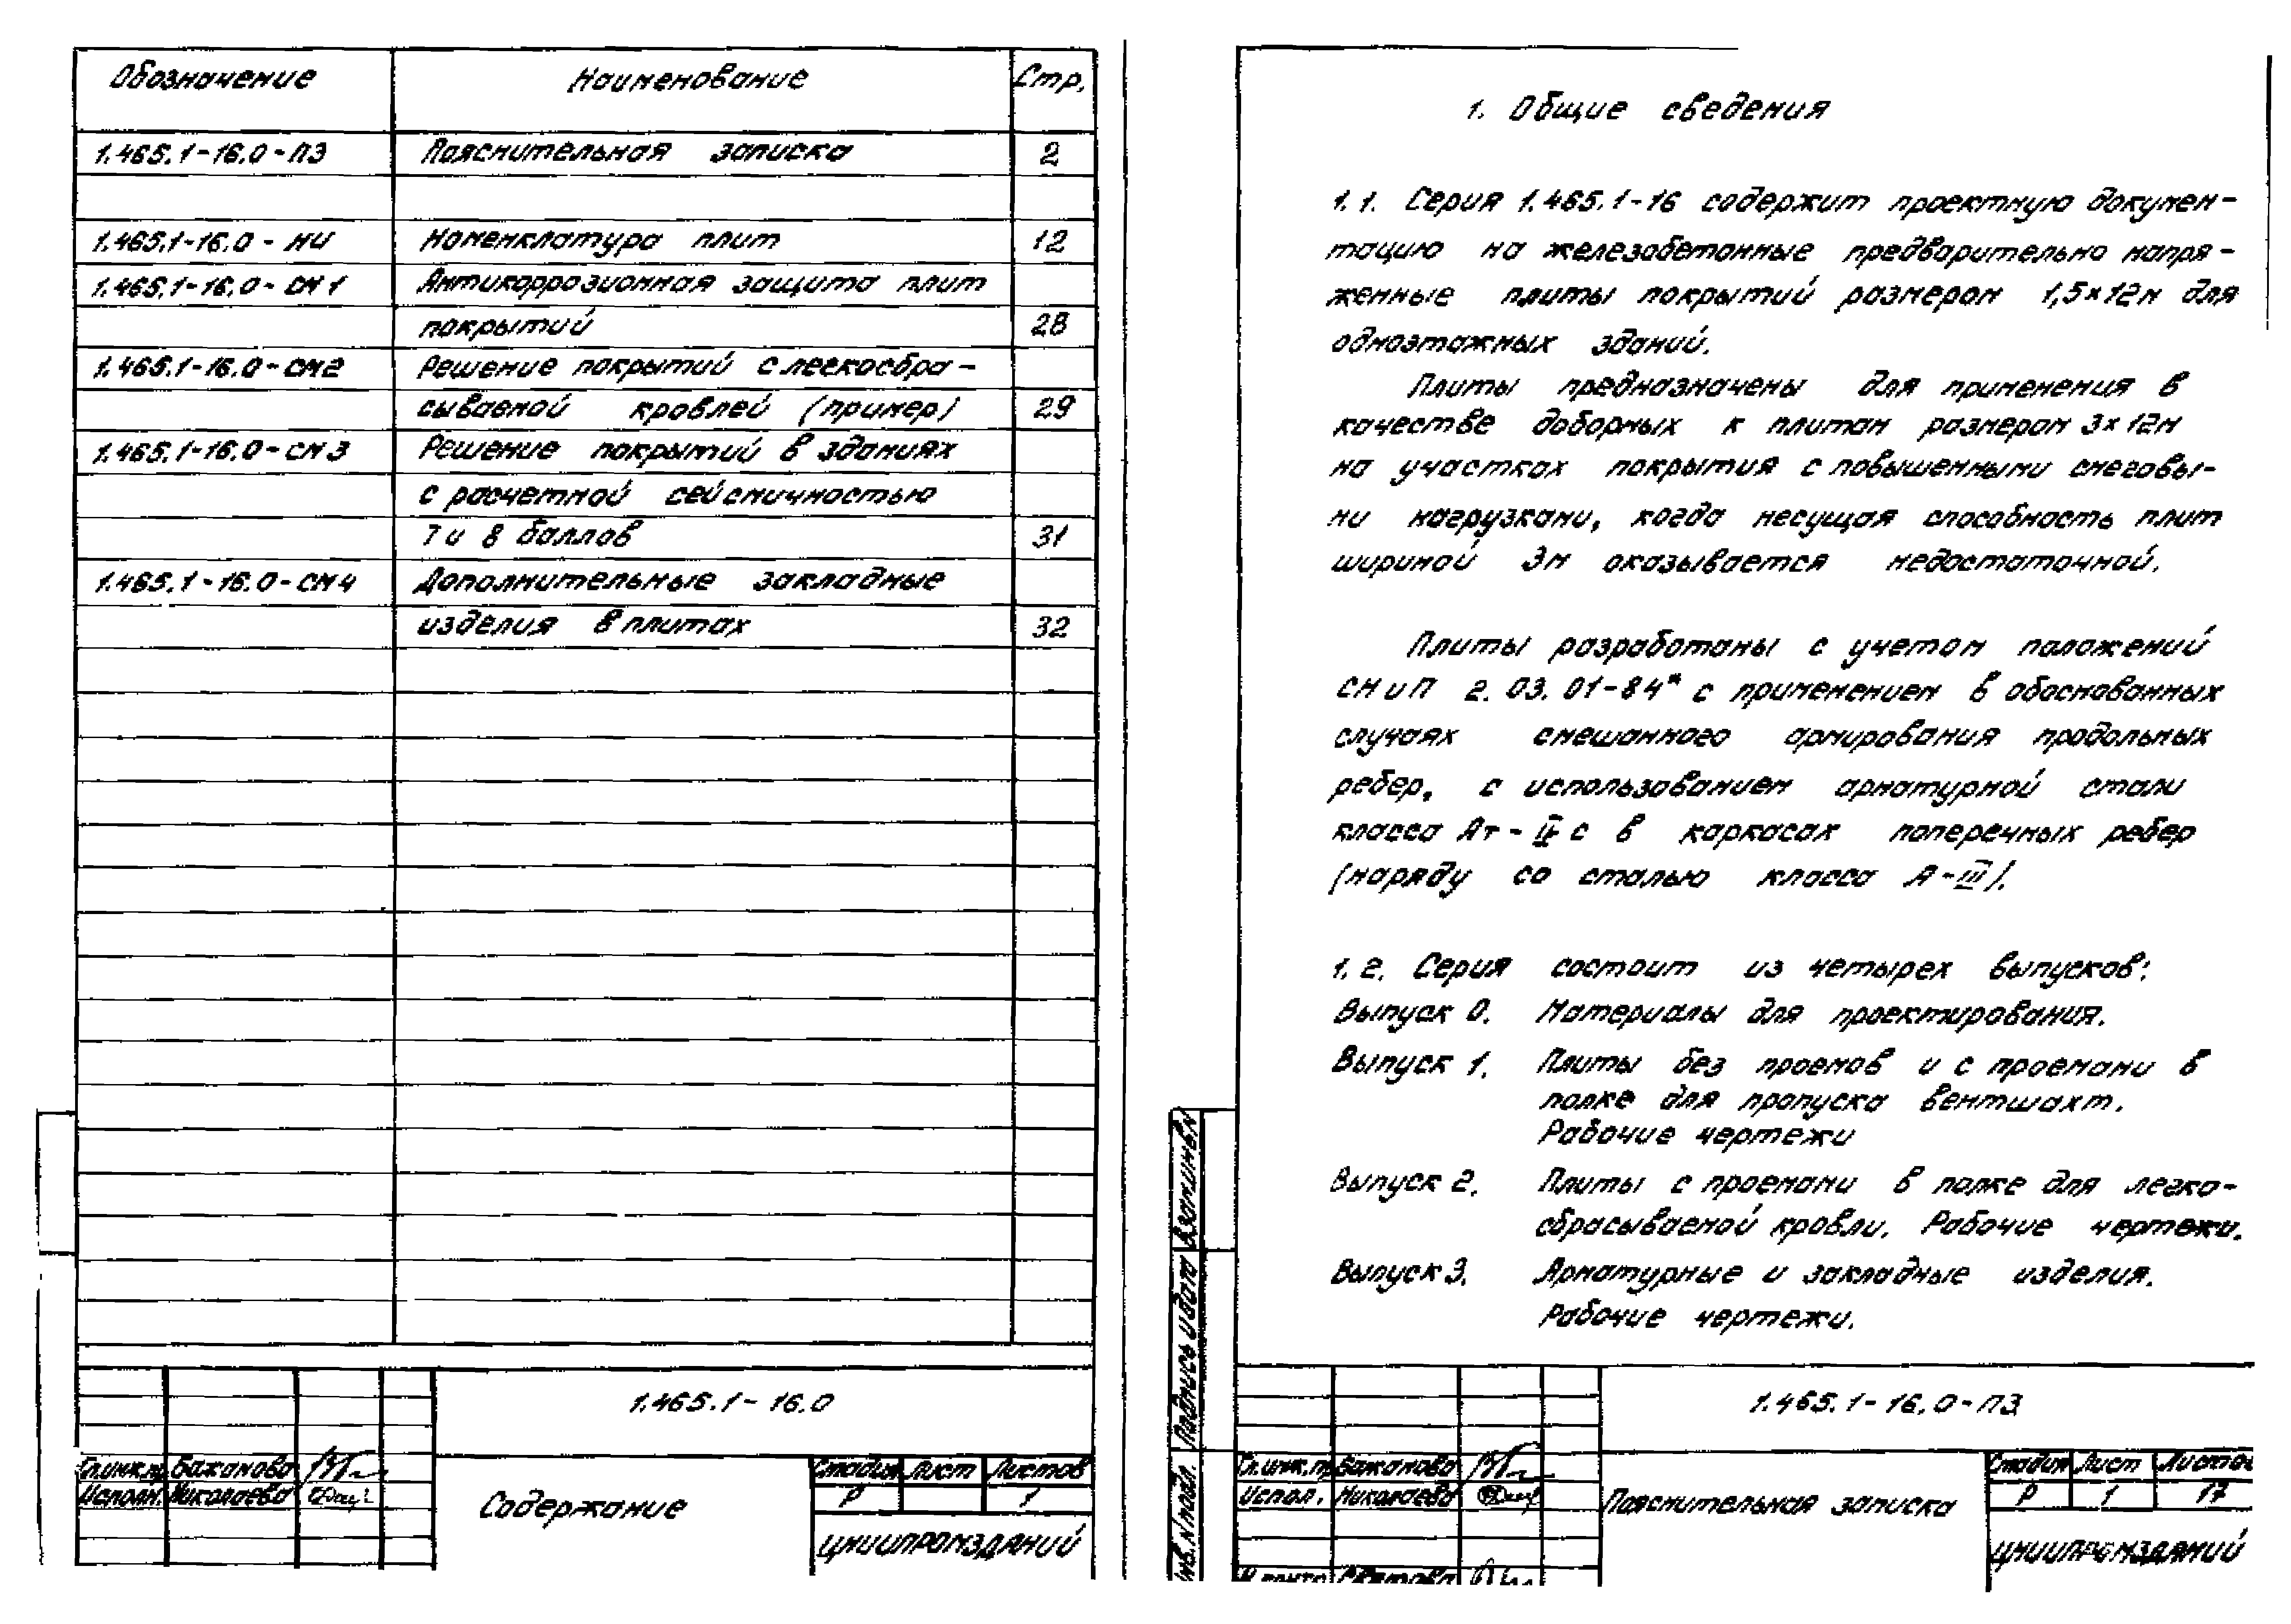 Обозначение Наименование Стр.
1.465.1-16.0-ПЗ Пояснительная записка 2
1.465.1-16.0-НИ Номенклатура плит 12
1.465.1-16.0-СМ1 Антикоррозионная защита плит
покрытий 28
1.465.1-16.0-СМ2 Решение покрытий с легкосбра-
сываемой кровлей (пример) 29
1.465.1-16.0-СМ3 Решение покрытий в зданиях
с расчетной сейсмичностью
7 и 8 баллов 31
1.465.1-16.0-СМ4 Дополнительные закладные
изделия в плитах 32
1.465.1-16.0
Гл.инж.п. Бажанова
Исполн. Николаева
Содержание
Стадия Лист Листов
Р 1
ЦНИИПРОМЗДАНИЙ
1. Общие сведения
1.1. Серия 1.465.1-16 содержит проектную докумен-
тацию на железобетонные предварительно напря-
женные плиты покрытий размером 1,5×12м для
одноэтажных зданий.
Плиты предназначены для применения в
качестве доборных к плитам размером 3×12м
на участках покрытия с повышенными снеговы-
ми нагрузками, когда несущая способность плит
шириной 3м оказывается недостаточной.
Плиты разработаны с учетом положений
СНиП 2.03.01-84* с применением в обоснованных
случаях смешанного армирования продольных
ребер, с использованием арматурной стали
класса Ат-IVс в каркасах поперечных ребер
(наряду со сталью класса А-III).
1.2. Серия состоит из четырех выпусков:
Выпуск 0. Материалы для проектирования.
Выпуск 1. Плиты без проемов и с проемами в
полке для пропуска вентшахт.
Рабочие чертежи
Выпуск 2. Плиты с проемами в полке для легко-
сбрасываемой кровли. Рабочие чертежи.
Выпуск 3. Арматурные и закладные изделия.
Рабочие чертежи.
Взам.инв.N
Подпись и дата
Инв.N подл.
1.465.1-16.0-ПЗ
Гл.инж.п. Бажанова
Испол. Николаева
Пояснительная записка
Стадия Лист Листов
Р 1 17
ЦНИИПРОМЗДАНИЙ